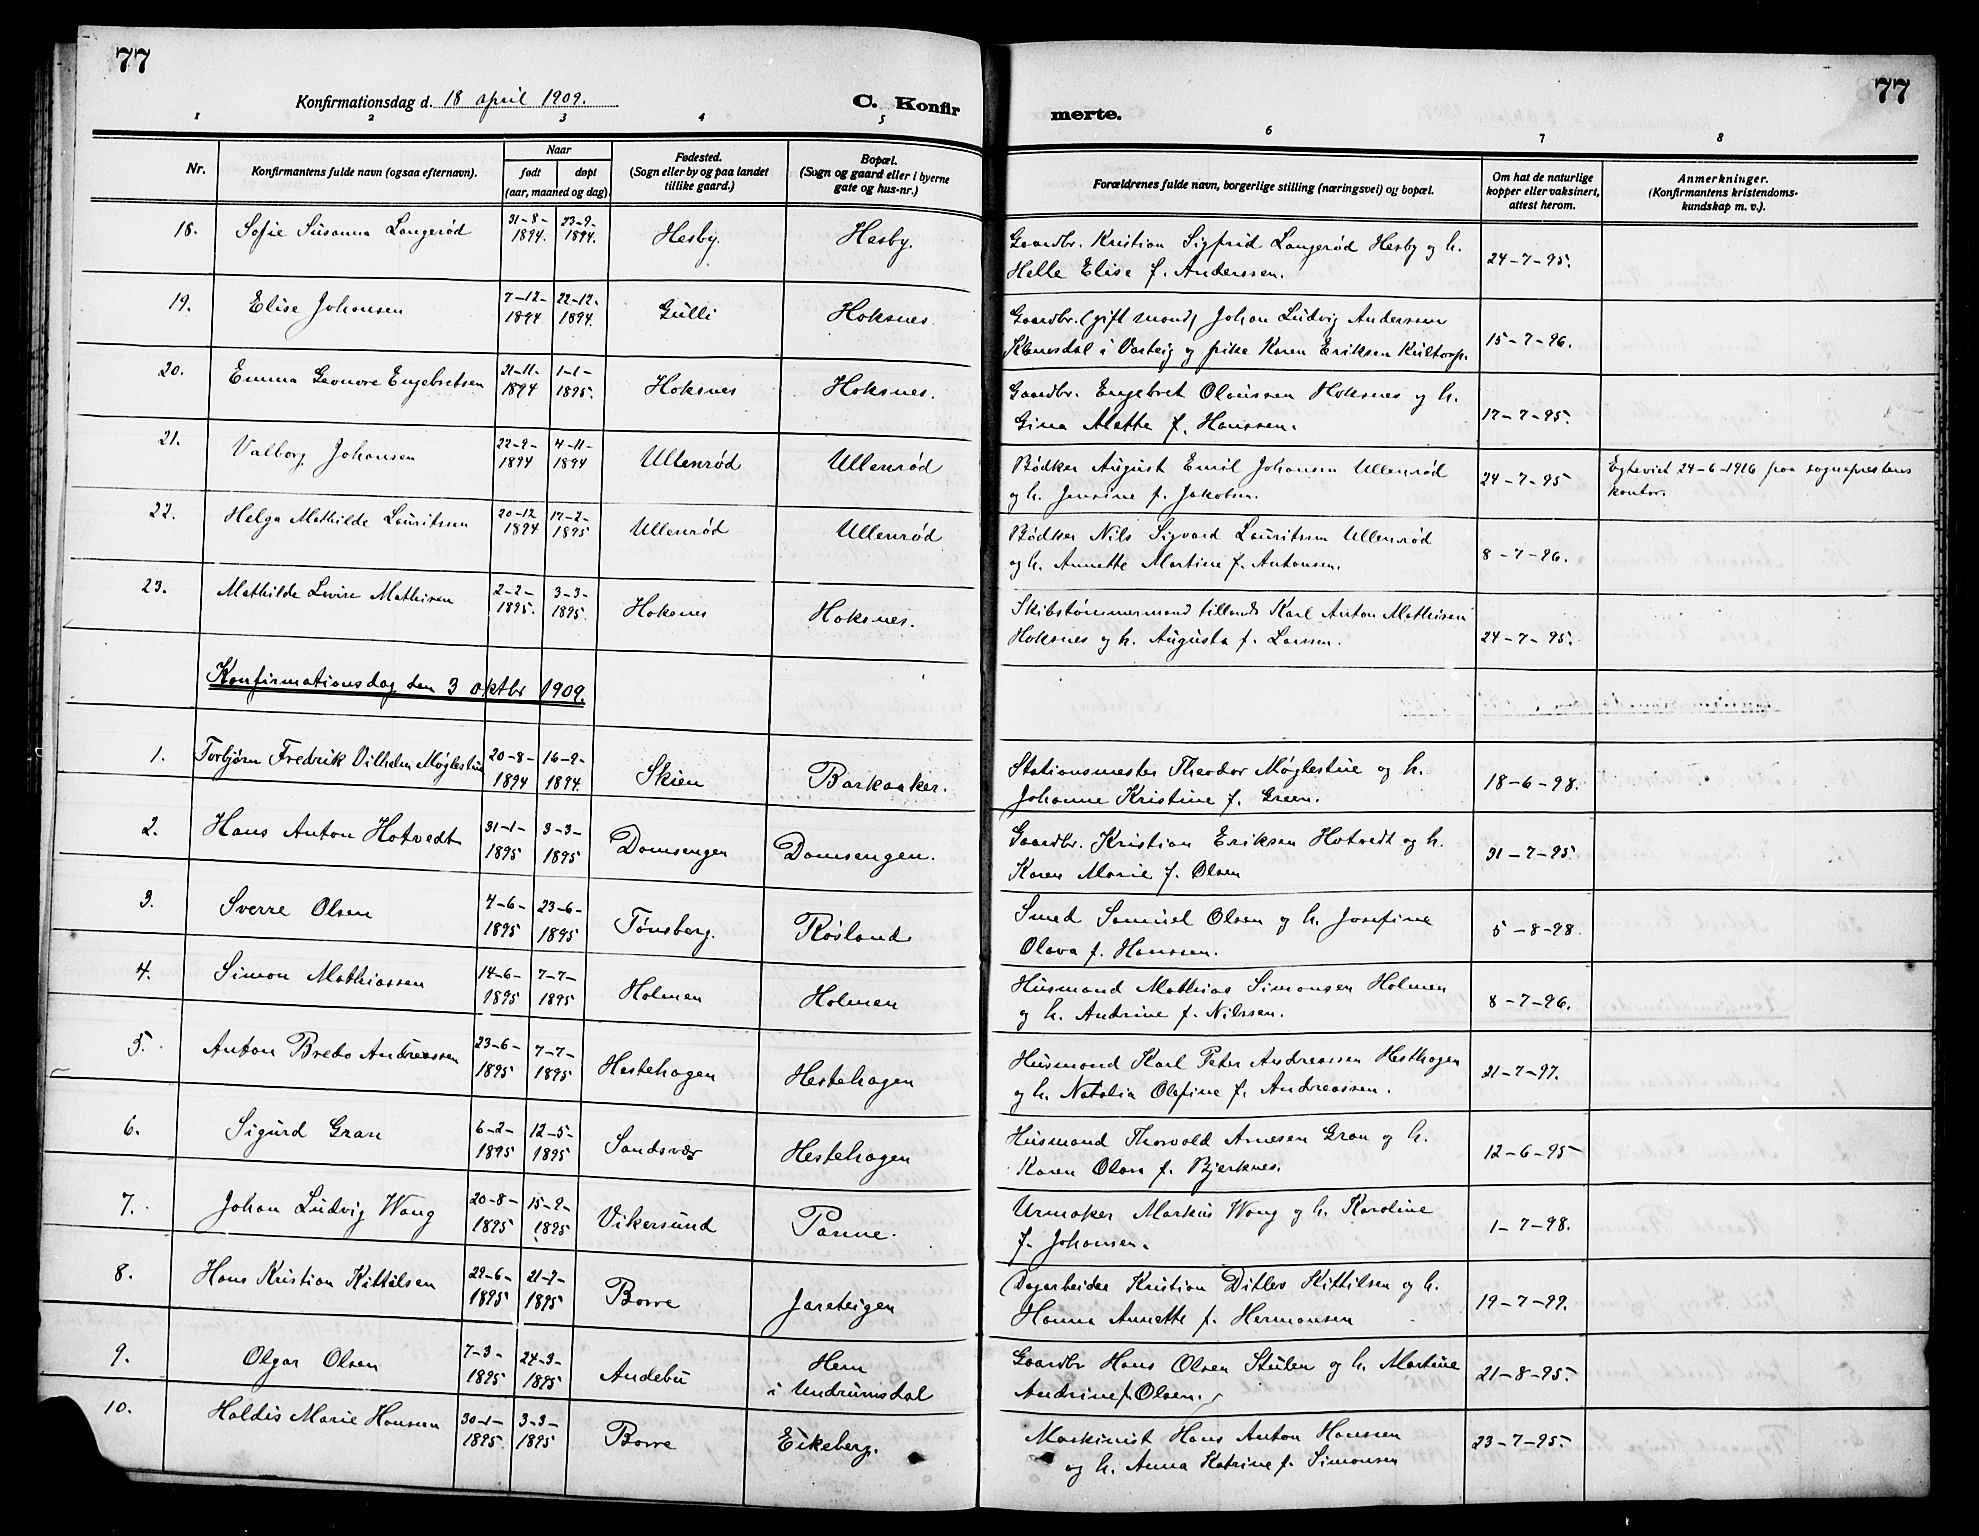 77
77
Konfirmationsdag d. 18 april 1909.
C. Konfir
merte.
1 2 3 4 5 6 7 8
Nr.
Konfirmantens fulde navn (ogsaa efternavn).
Naar
født døpt
(aar, maaned og dag)
Fødested.
(Sogn eller by og paa landet
tillike gaard.)
Bopæl.
(Sogn og gaard eller i byerne
gate og hus-nr.)
Forældrenes fulde navn, borgerlige stilling (næringsvei) og bopæl.
Om hat de naturlige
kopper eller vaksinert,
attest herom.
Anmerkninger.
(Konfirmantens kristendoms-
kundskap m. v.).
18. Sofie Susanna Langerød 31-8-1894. 23-9-1894. Hesby. Hesby. Gaardbr. Kristian Sigfrid Langerød Hesby og h.
Helle Elise f. Anderssen. 24-7-95.
19. Elise Johansen 7-12-1894 22-12-1894. Gulli Hoksnes. Gaardbr. (gift mand) Johan Ludvig Anderssen
i Varteig og pike Karen Eriksen 15-7-96.
20. Emma Leonore Engebretsen 21-11-1894 1-1-1895. Hoksnes Hoksnes. Gaardbr. Engebret Olaussen Hoksnes og h.
Gina Mathea f. Hanssen. 17-7-95.
21. Valborg Johansen 22-9-1894 4-11-1894 Ullenrød Ullenrød Bødker August Emil Johansen Ullenrød
og h. Jensine f. Jakobsen. 24-7-95 Egteviet 24-6-1916 paa sogneprestens
kontor.
22. Helga Mathilde Lauritssen 20-12 1894 17-2-1895 Ullenrød Ullenrød Bødker Nils Sigvard Lauritssen Ullenrød
og h. Annette Martine f. Antonsen. 8-7-96.
23. Mathilde Lovise Mathisen 2-2-1895. 3-3-1895. Hoksnes Hoksnes. Skibstømmermand tillands Karl Anton Mathisen
Hoksnes og h. Augusta f. Larssen. 24-7-95.
Konfirmationsdag den 3 oktbr 1909.
1. Torbjørn Fredrik Vilhelm Møglestue 20-8-1894 16-9-1894. Skien Barkaaker. Stationsmester Theodor Møglestue og h.
Johanne Kristine f. Green. 18-6-98.
2. Hans Anton Hotvedt 31-1-1895 3-3-1895 Domsengen Domsengen. Gaardbr. Kristian Eriksen Hotvedt og h.
Karen Marie f. Olsen 31-7-95.
3. Sverre Olsen 4-6-1895 23-6-1895 Tønsberg. Røsland Smed Samuel Olsen og h. Josefine
Olava f. Hanssen. 5-8-98.
4. Simon Mathiassen 14-6-1895 7-7-1895 Holmen Holmen Husmand Mathias Simonsen Holmen
og h. Andrine f. Nilssen. 8-7-96.
5. Anton Bredo Andreassen 23-6-1895 7-7-1895 Hestehagen Hestehagen Husmand Karl Peter Andreassen Hesthagen
og h. Natalia Olefine f. Andreassen. 21-7-97.
6. Sigurd Gran 6-2-1895 12-5-1895 Sandsvær Hestehagen Husmand Thorvald Arnesen Gran og h.
Karen Olava f. Bjerknes. 12-6-95
7. Johan Ludvig Wang 20-8-1895 15-9-1895 Vikersund Panne. Urmaker Markus Wang og h. Karoline
f. Johansen. 1-7-98.
8. Hans Kristian Kittilsen 29-6-1895 21-7-1895 Borre Jareteigen Dagarbeider Kristian Ditlev Kittilsen og h.
Hanna Annette f. Hermansen 19-7-99.
9. Olgar Olsen 7-3-1895 24-3-1895 Andebu Hem
i Undrumsdal Gaardbr Hans Olsen Stulen og h. Martine
Andrine f. Olsen. 21-8-95.
10. Haldis Marie Hansen 30-1-1895. 3-3-1895 Borre Eikeberg. Maskinist Hans Anton Hanssen
og h. Anna Katrine f. Simonsen 23-7-95.